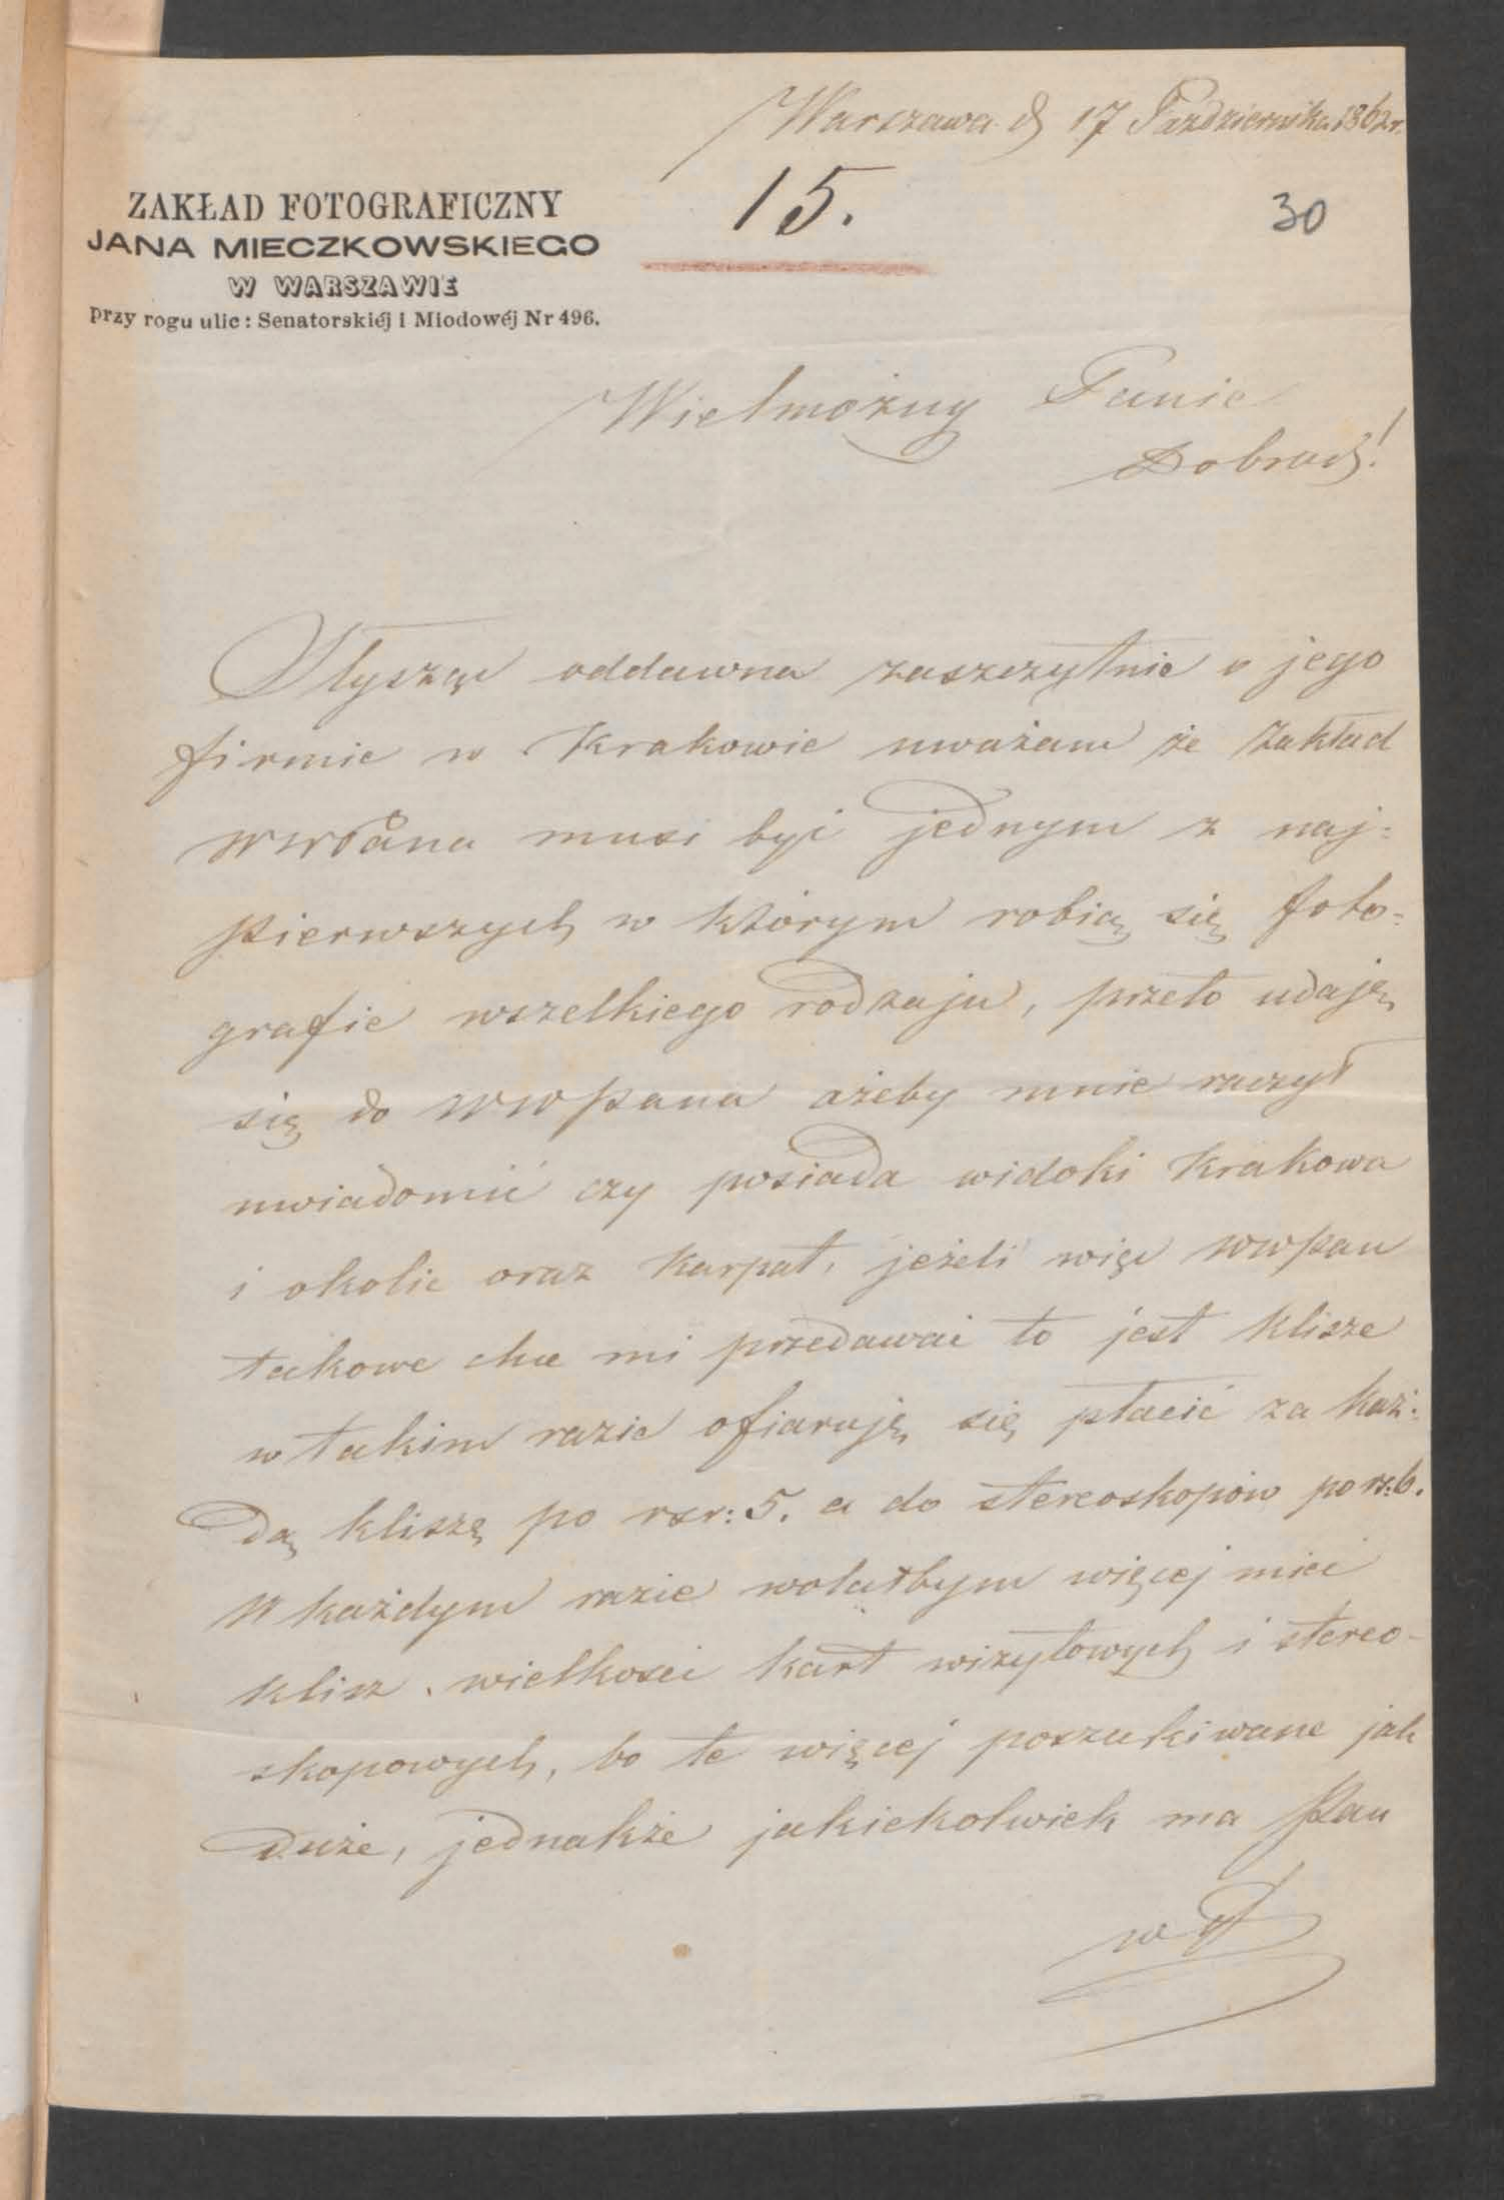 Warszawa d 17 Października 1862 r.
15.
30
ZAKŁAD FOTOGRAFICZNY
JANA MIECZKOWSKIEGO
W WARSZAWIE
przy rogu ulic: Senatorskiéj i Miodowéj Nr 496.
Wielmożny Panie
Dobrodz!
Słysząc oddawna zaszczytnie o jego
firmie w Krakowie uważam że Zakład
WWPana musi być jednym z naj=
pierwszych w którym robią się foto=
grafie wszelkiego rodzaju, przeto udaję
się do WWPana ażeby mnie raczył
uwiadomić czy posiada widoki Krakowa
i okolic oraz Karpat, jeżeli więc WWPan
takowe chce mi przedawać to jest klisze
w takim razie ofiaruję się płacić za każ=
dą kliszę po rsr: 5. a do stereoskopów po rs: 6.
W każdym razie wolałbym więcej mieć
klisz wielkości kart wizytowych i stereo-
skopowych, bo te więcej poszukiwane jak
duże, jednakże jakiekolwiek ma Pan